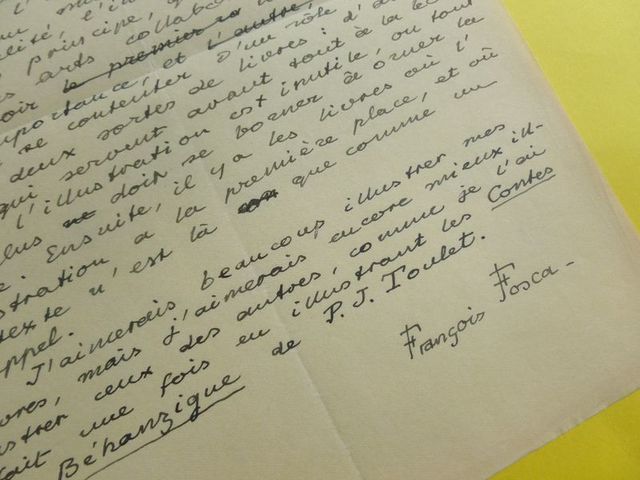 principe,
les arts collabor
le premier
importance, et l'autre,
se contenter d'un rôle
deux sortes de livres: d'a
qui servent avant tout à la le
l'illustration est inutile, ou tout
plus doit se borner à orner la
Ensuite, il y a les livres où l'
stration a la première place, et où
texte n'est là que comme un
ppel.
J'aimerais beaucoup illustrer mes
vres, mais j'aimerais encore mieux il-
strer ceux des autres, comme je l'ai
fait une fois en illustrant les Contes
Béhanzigue de P. J. Toulet.
François Fosca -